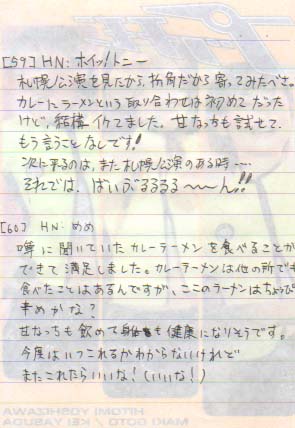 [59] HN: ホイッ!トニー
札幌公演を見たから、折角だから寄ってみたべさ。
カレーにラーメンという取り合わせは初めてだった
けど、結構イケてました。甘なっちも試せて、
もう言うことなしです!
次に来るのは、また札幌公演のある時‥‥
それでは、ばいぶるるるる〜〜ん!!
[60] HN: めめ
噂に聞いていたカレーラーメンを食べることが
できて満足しました。カレーラーメンは他の所でも
食べたことはあるんですが、ここのラーメンはちょっぴり
辛めかな?
甘なっちも飲めて身も健康になりそうです。
今度はいつこれるかわからないけれど
またこれたらいいな!(いいな!)
HITOMI YOSHIZAWA
MAKI GOTO / KEI YASUDA